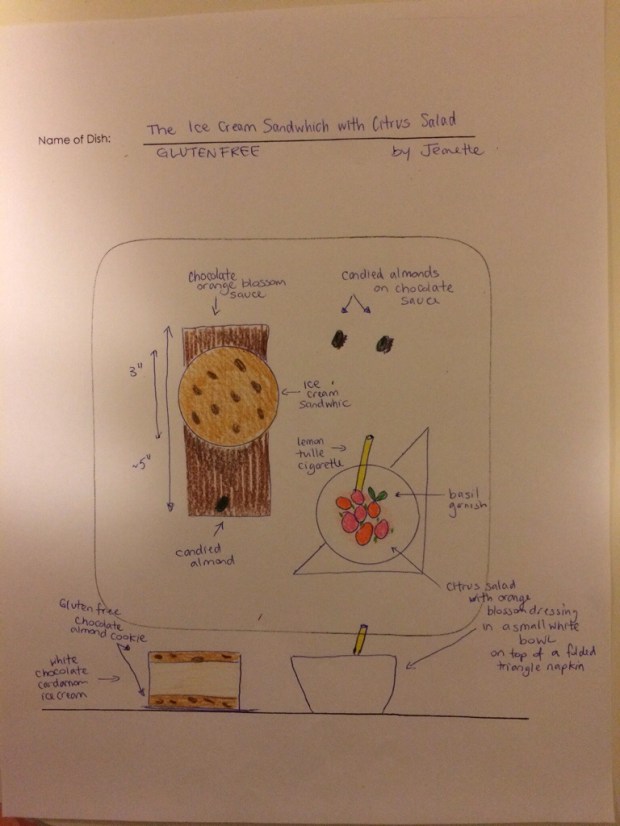 Name of Dish:
The Ice Cream Sandwhich with Citrus Salad
GLUTEN FREE
by Jenette
Chocolate
orange blossom
sauce
Candied almonds
on chocolate
sauce
3"
Ice
cream
Sandwhic
lemon
tulle
cigarette
~5"
basil
garnish
candied
almond
Citrus salad
with orange
blossom dressing
in a small white
bowl
on top of a folded
triangle napkin
Gluten free
chocolate
almond cookie
white
chocolate
cardamom
ice cream